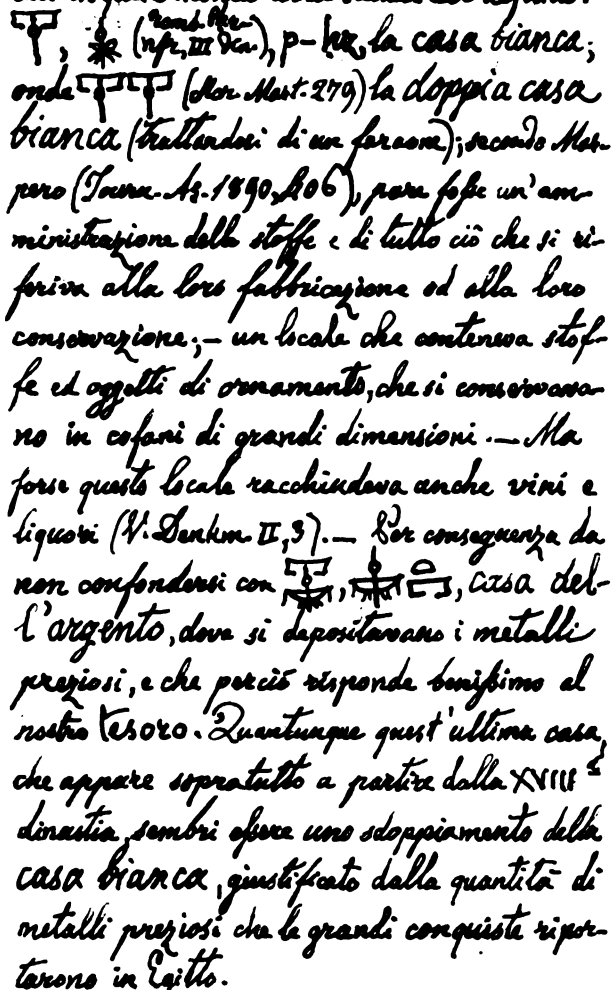 (nfr, III din.), p-ḥz, la casa bianca;
onde (Mar. Mast. 279) la doppia casa
bianca (trattandosi di un faraone); secondo Mas-
pero (Journ. As. 1890, 406), pare fosse un'am-
ministrazione delle stoffe e di tutto ciò che si ri-
feriva alla loro fabbricazione ed alla loro
conservazione; — un locale che conteneva stof-
fe ed oggetti di ornamento, che si conservava-
no in cofani di grandi dimensioni. — Ma
forse questo locale racchiudeva anche vini e
liquori (V. Denkm. II, 3). — Per conseguenza da
non confondersi con , , casa del-
l'argento, dove si depositavano i metalli
preziosi, e che perciò risponde benissimo al
nostro tesoro. Quantunque quest'ultima casa,
che appare sopratutto a partire dalla XVIIIª
dinastia, sembri essere uno sdoppiamento della
casa bianca, giustificato dalla quantità di
metalli preziosi che le grandi conquiste ripor-
tarono in Egitto.